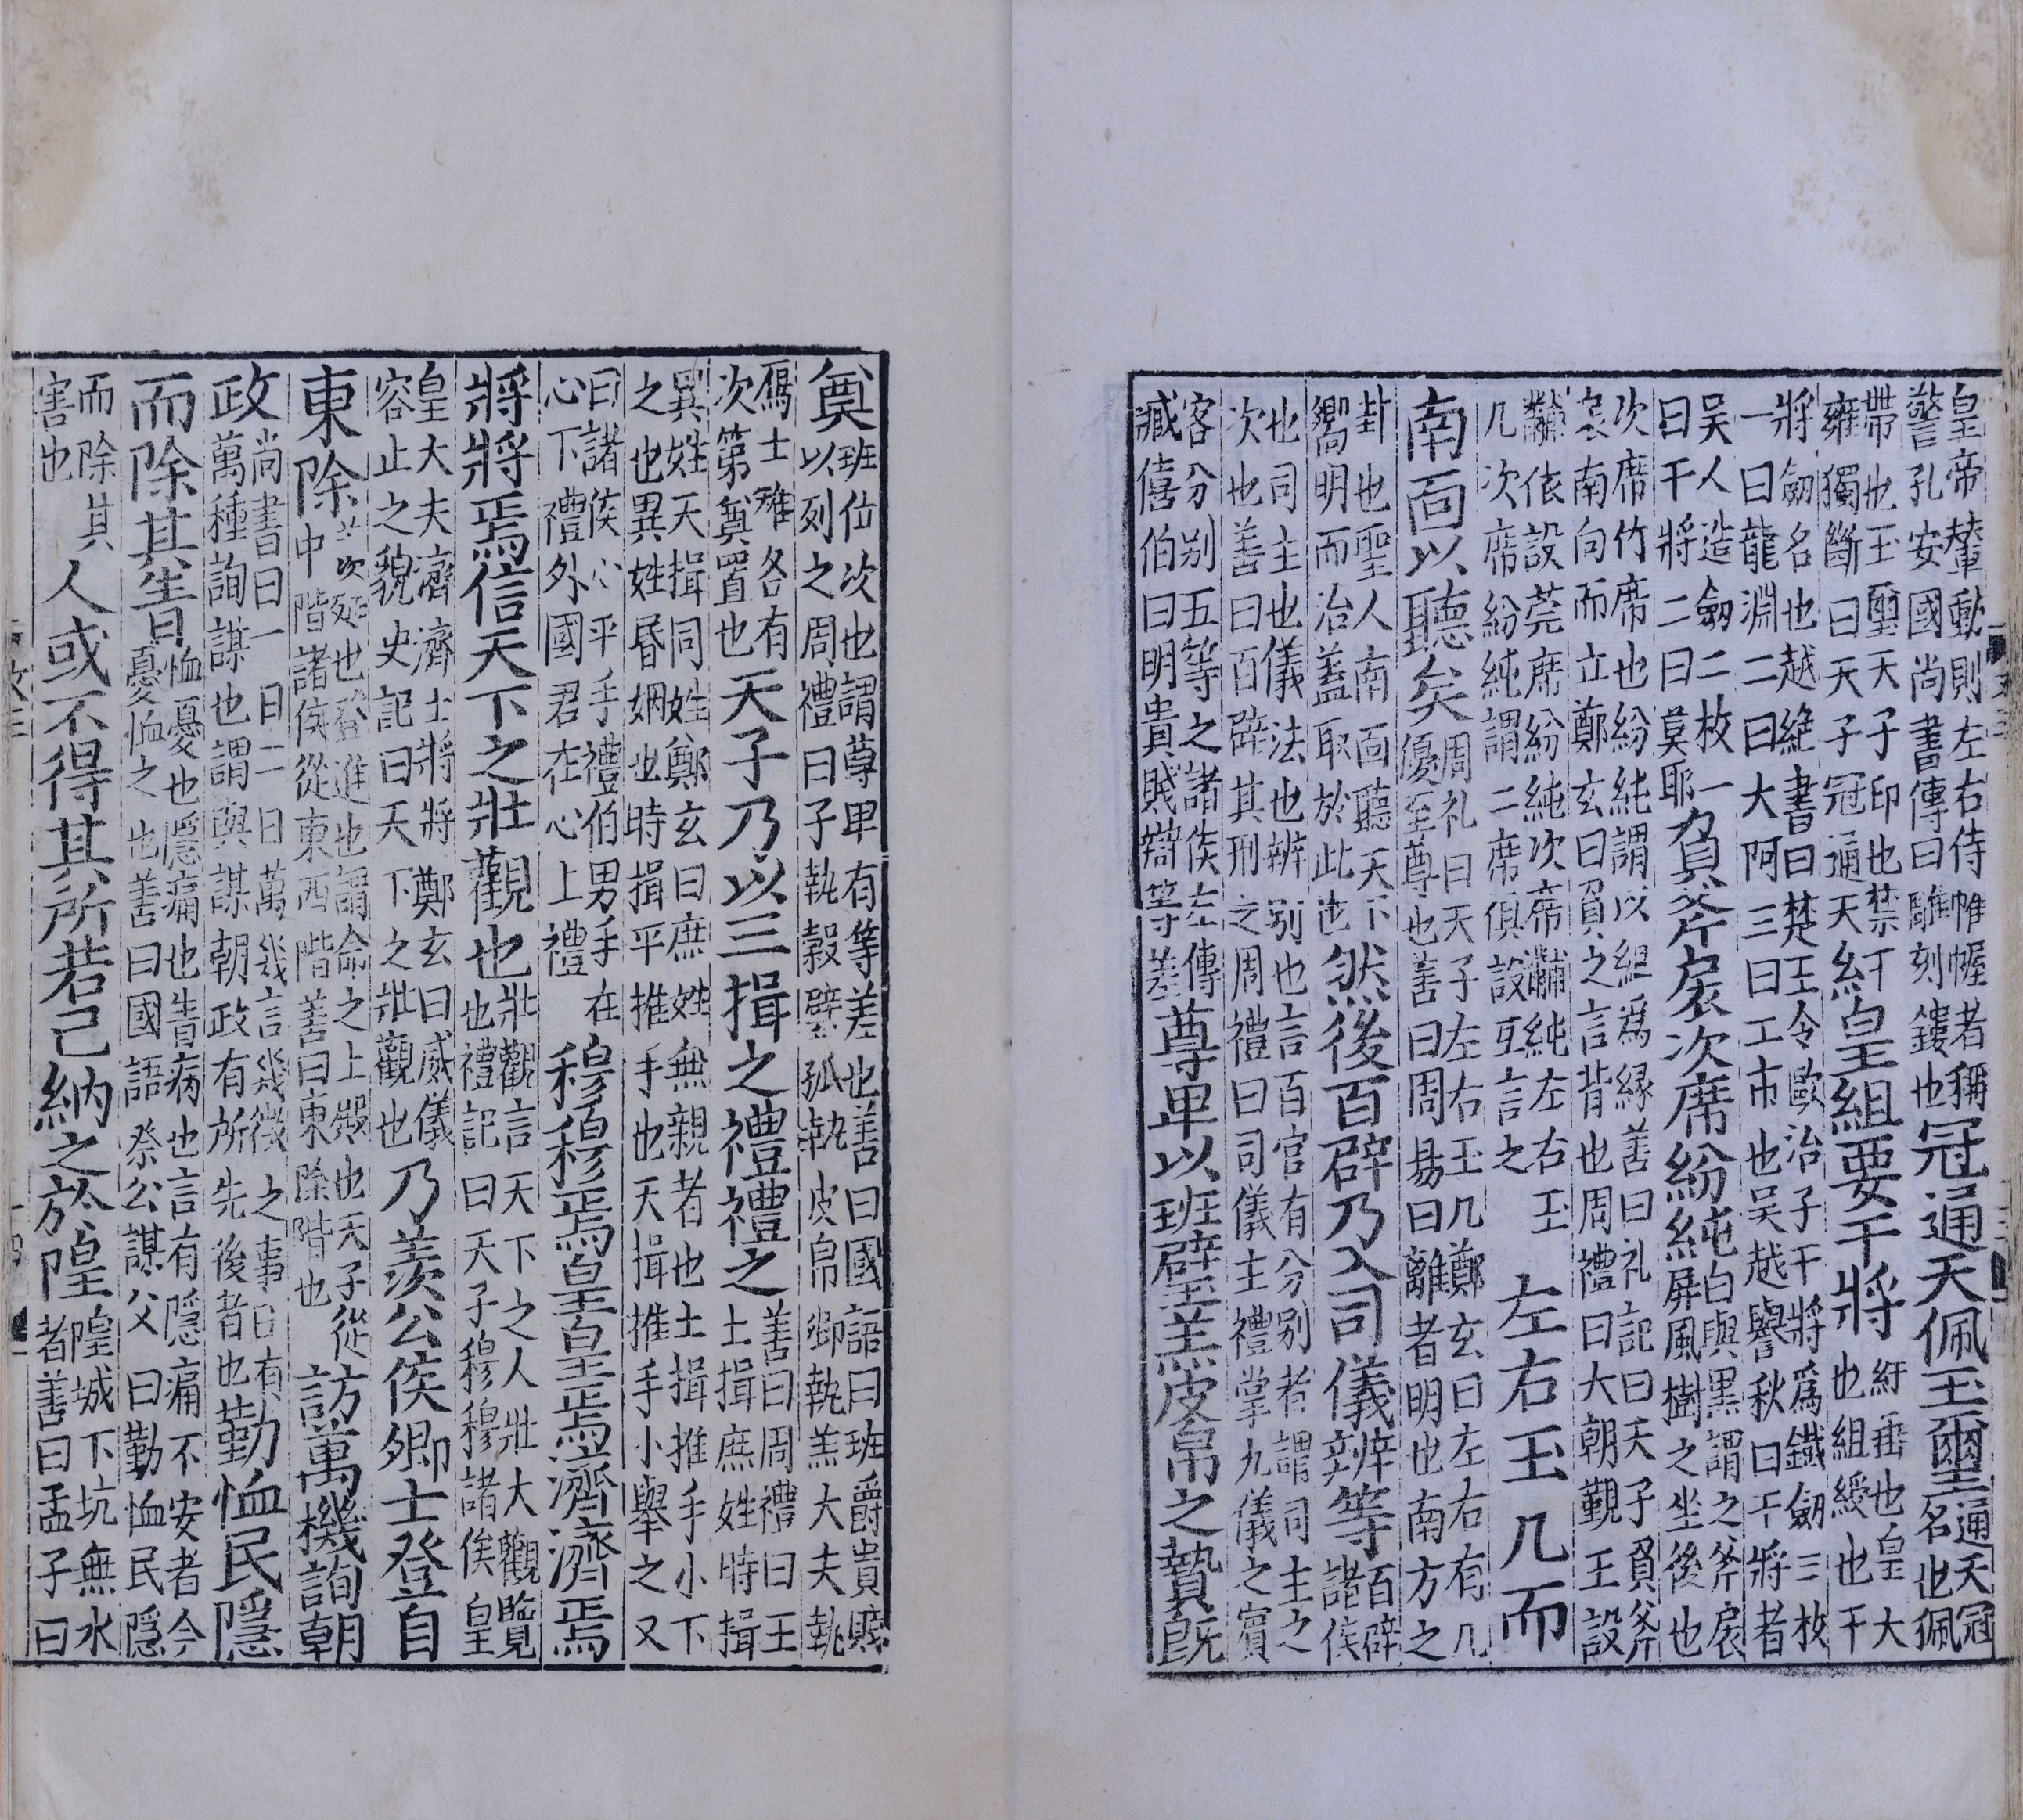 皇帝輦動則左右侍帷幄者稱警孔安國尚書傳曰雕刻鏤也冠通天佩玉璽通天冠名也佩
帶也玉璽天子印也雍獨斷曰天子冠通天紆皇組要干將紆垂也皇大也組綬也干
將劔名也越絶書曰楚王令歐冶子干將爲鐵劔三枚一曰龍淵二曰大阿三曰工市也吴越春秋曰干將者
吴人造劔二枚一曰干將二曰莫耶負斧扆次席紛純白與黑謂之斧扆屏風樹之坐後也
次席竹席也紛純謂以組爲緣善曰礼記曰天子負斧扆南向而立鄭玄曰負之言背也周禮曰大朝覲王設
黼依設莞席紛純次席黼純左右玉几次席紛純謂二席俱設互言之左右玉几而
南面以聽矣周礼曰天子左右玉几鄭玄曰左右有几優至尊也善曰周易曰離者明也南方之
卦也聖人南面聽天下嚮明而治蓋取於此也然後百辟乃入司儀辨等百辟諸侯
也司主也儀法也辨别也言百官有分别者謂司主之次也善曰百辟其刑之周禮曰司儀主禮掌九儀之賓
客分别五等之諸侯左傳臧僖伯曰明貴賤辯等差尊卑以班璧羔皮帛之贄既
奠班位次也謂尊卑有等差也善曰國語曰班爵貴賤以列之周禮曰子執穀璧孤執皮帛卿執羔大夫執
鴈士雉各有次第奠置也天子乃以三揖之禮禮之善曰周禮曰王土揖庶姓時揖
異姓天揖同姓鄭玄曰庶姓無親者也土揖推手小下之也異姓昏姻也時揖平推手也天揖推手小舉之又
曰諸侯心平手禮伯男手在心下禮外國君在心上禮穆穆焉皇皇焉濟濟焉
將將焉信天下之壯觀也壯觀言天下之人壯大觀覽也禮記曰天子穆穆諸侯皇
皇大夫濟濟士將將鄭玄曰威儀容止之貌史記曰天下之壯觀也乃羨公侯卿士登自
東除次延也登進也謂命之上殿也天子從中階諸侯從東西階善曰東除階也訪萬機詢朝
政尚書曰一日二日萬幾言幾微之事日有萬種詢謀也謂與謀朝政有所先後者也勤恤民隱
而除其眚恤憂也隱痛也眚病也言有隱痛不安者今憂恤之也善曰國語祭公謀父曰勤恤民隱
而除其害也人或不得其所若己納之於隍隍城下坑無水者善曰孟子曰